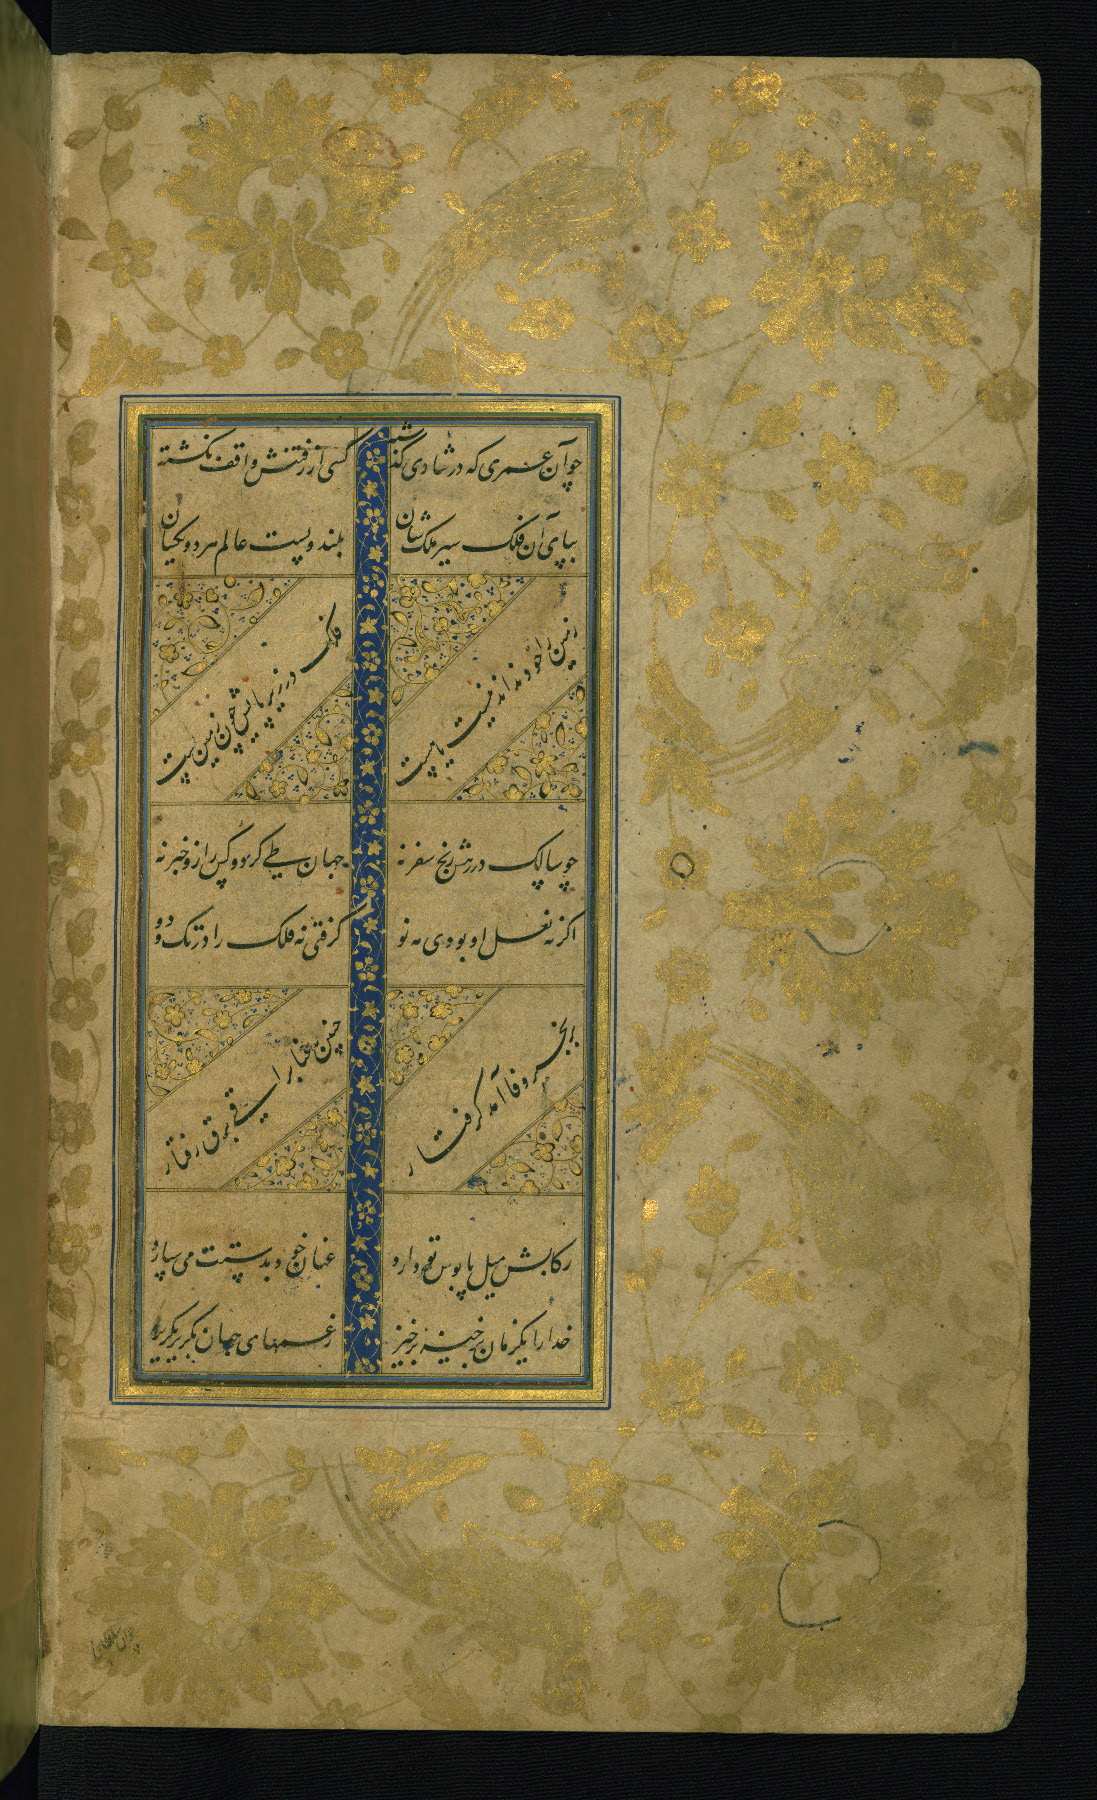 چو آن عمری که در شادی گذشته
کسی از رفتنش واقف نکشته
بپای آن فلک سیر ملک شان
بلند و پست عالم هر دو یکسان
زمین را خود نداند نیست یا پست
فلک در زیر پایش چون زمین پست
چو سالک در رهش رنج سفر نه
جهان طی کرد و کس را زو خبر نه
اگر نه نعل او بودی مه نو
گرفتی نه فلک را در تک و دو
وفا آمد گرفتار
چنین رعنا براقی برق رفتار
رکابش میل پابوس تو دارد
عنان خود بدستت می سپارد
خدا را یکزمان برخیز برخیز
زغمهای جهان بگریز بگریز